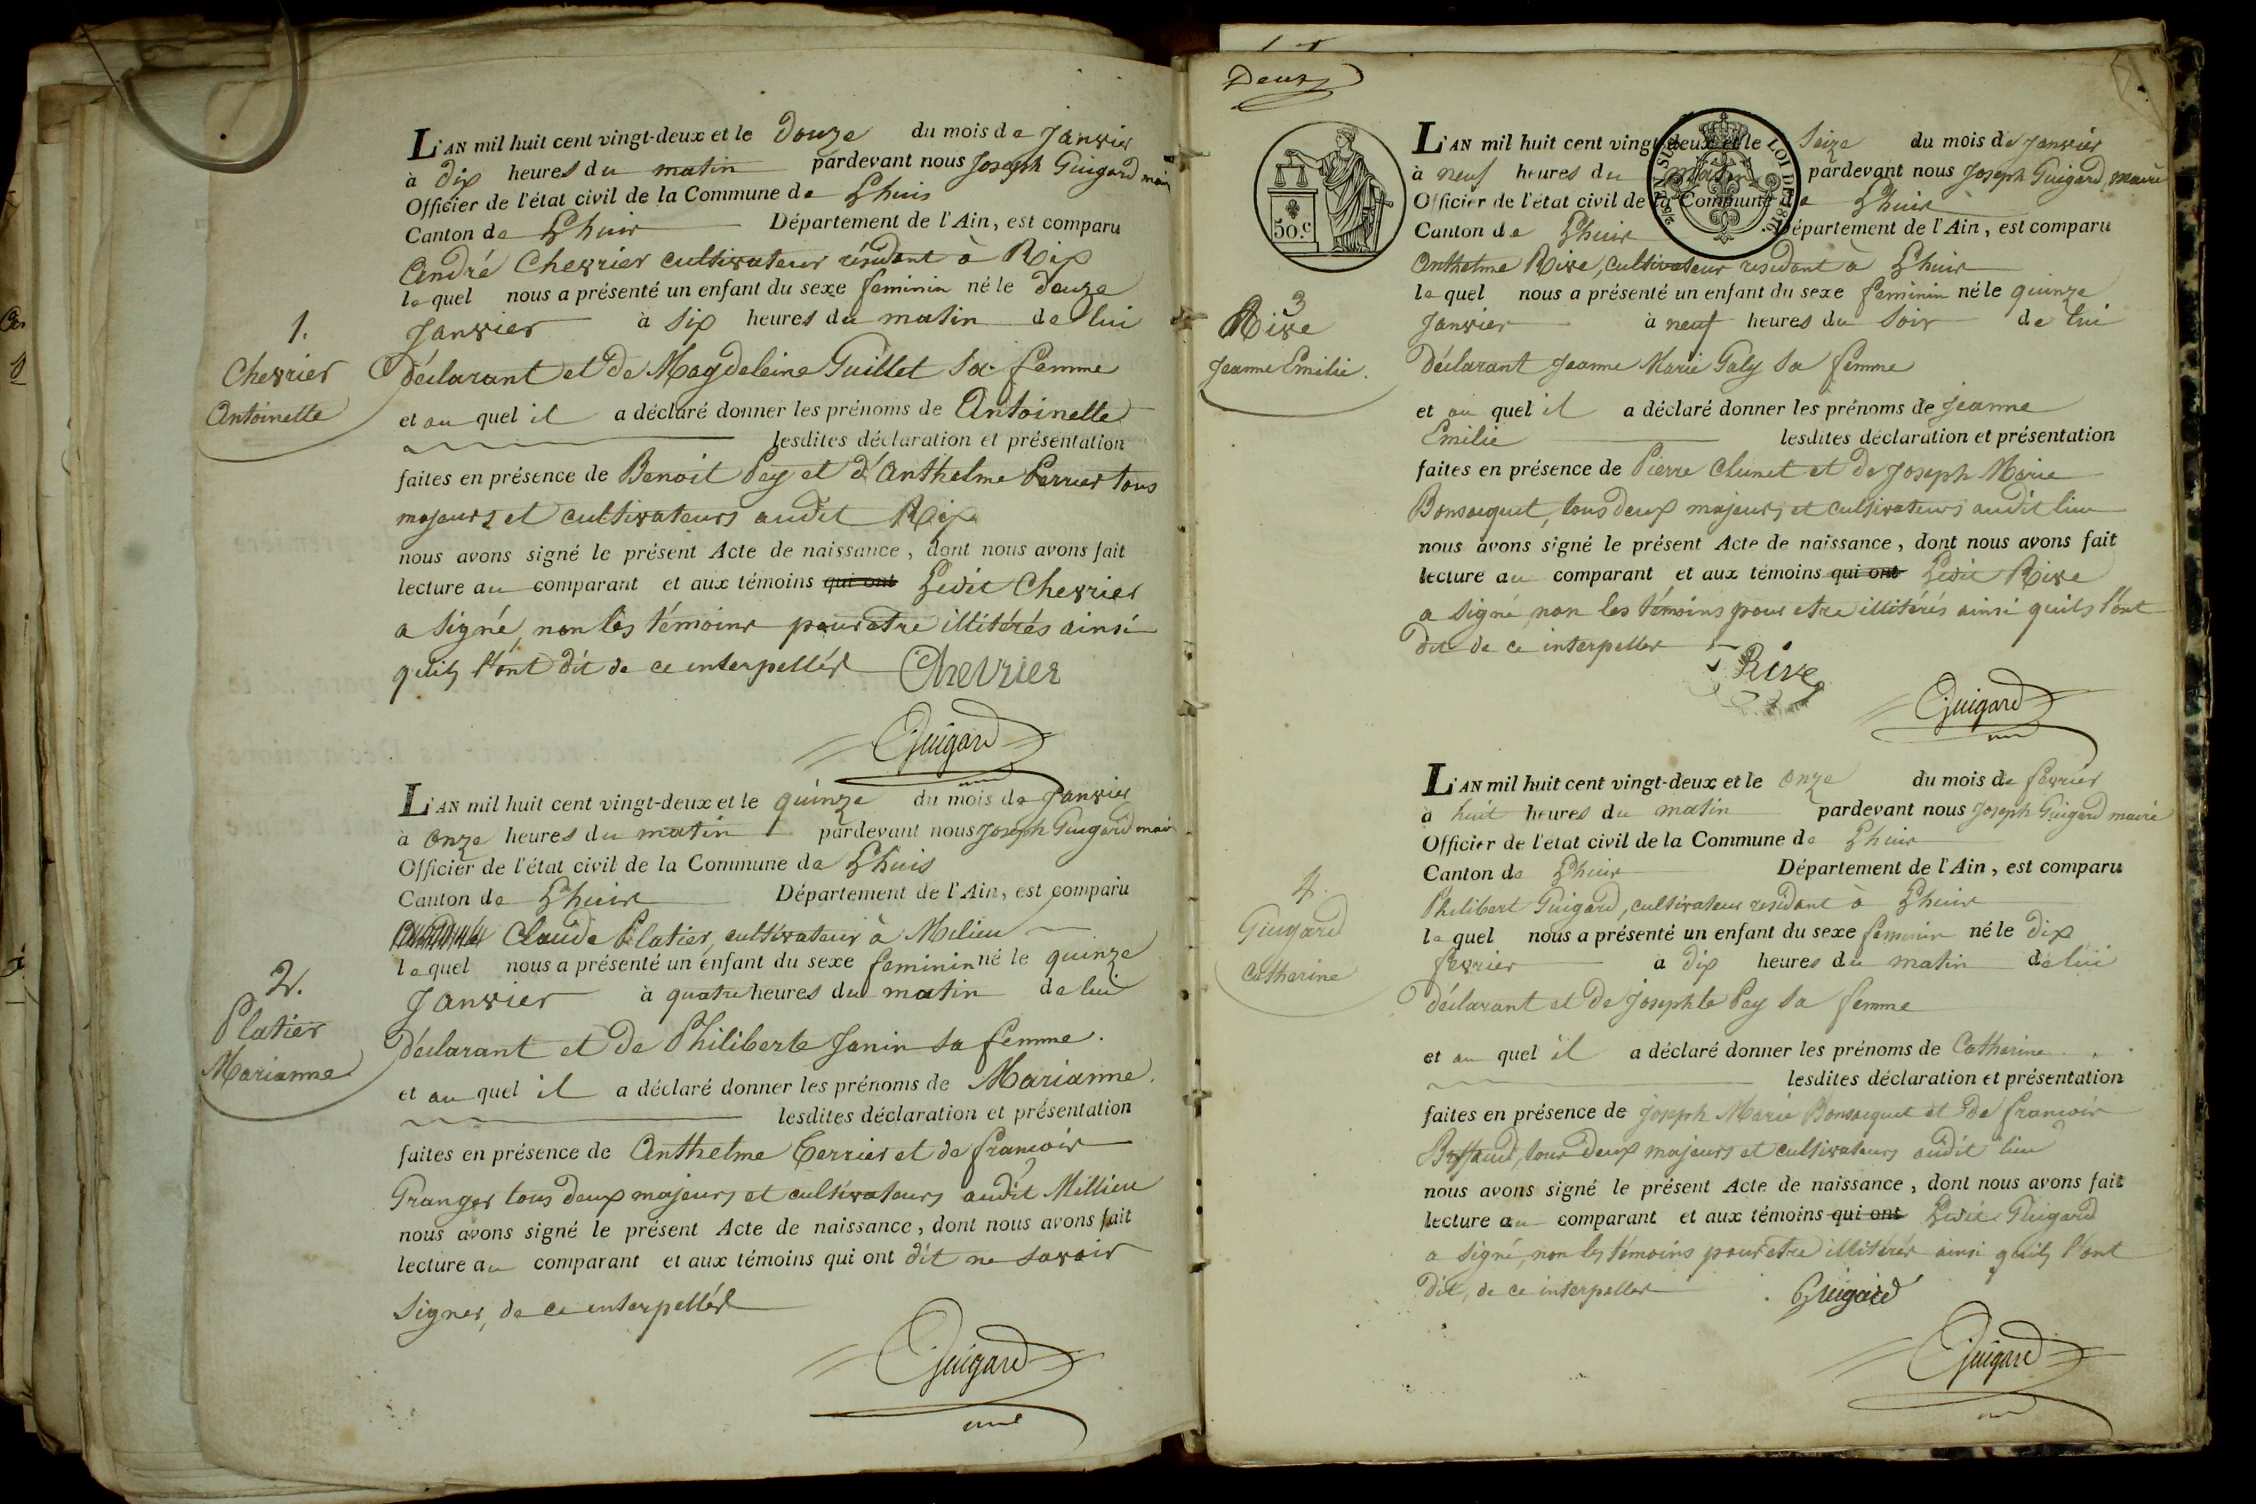 L'AN mil huit cent vingt-deux et le douze du mois de Janvier
à dix heures du matin pardevant nous Joseph Guigard maire
Officier de l'état civil de la Commune de Lhuis
Canton de Lhuis Département de l'Ain, est comparu
André Chevrier cultivateur résidant à Rix
lequel nous a présenté un enfant du sexe feminin né le douze
Janvier à six heures du matin de lui
1.
Chevrier
Antoinette
déclarant et de Magdeleine Guillet sa femme
et au quel il a déclaré donner les prénoms de Antoinette
lesdites déclaration et présentation
faites en présence de Benoit Pey et d'Anthelme Perrier tous
majeurs et cultivateurs audit Rix
nous avons signé le présent Acte de naissance, dont nous avons fait
lecture au comparant et aux témoins qui ont Ledit Chevrier
a signé, non les témoins pour etre illitérés ainsi
quils l'ont dit de ce interpellés Chevrier
Guigard
L'AN mil huit cent vingt-deux et le quinze du mois de Janvier
à onze heures du matin pardevant nous Joseph Guigard maire
Officier de l'état civil de la Commune de Lhuis
Canton de Lhuis Département de l'Ain, est comparu
Claude Platier, cultivateur à Milieu
lequel nous a présenté un enfant du sexe feminin né le quinze
Janvier à quatre heures du matin de lui
2.
Platier
Marianne
déclarant et de Philiberte Janin sa femme.
et au quel il a déclaré donner les prénoms de Marianne.
lesdites déclaration et présentation
faites en présence de Anthelme Terrier et de francois
Granger tous deux majeurs et cultivateurs audit Millieu
nous avons signé le présent Acte de naissance, dont nous avons fait
lecture au comparant et aux témoins qui ont dit ne savoir
signer, de ce interpellés
Guigard
Deux
50.c
L'AN mil huit cent vingt-deux et le Seize du mois de Janvier
à neuf heures du matin pardevant nous Joseph Guigard, maire
Officier de l'état civil de la Commune de Lhuis
Canton de Lhuis Département de l'Ain, est comparu
Anthelme Rive, cultivateur residant à Lhuis
lequel nous a présenté un enfant du sexe feminin né le quinze
Janvier à neuf heures du soir de lui
3
Rive
Jeanne Emilie.
Déclarant Jeanne Marie Galy sa femme
et au quel il a déclaré donner les prénoms de Jeanne
Emilie lesdites déclaration et présentation
faites en présence de Pierre Clunet et de Joseph Marie
Bonsacquet, tous deux majeurs et cultivateurs audit lieu
nous avons signé le présent Acte de naissance, dont nous avons fait
lecture au comparant et aux témoins qui ont Ledit Rive
a signé, non les témoins pour etre illitérés ainsi quils l'ont
dit de ce interpellés
Rive
Guigard
L'AN mil huit cent vingt-deux et le onze du mois de fevrier
à huit heures du matin pardevant nous Joseph Guigard maire
Officier de l'état civil de la Commune de Lhuis
Canton de Lhuis Département de l'Ain, est comparu
Philibert Guigard, cultivateur residant à Lhuis
lequel nous a présenté un enfant du sexe feminin né le dix
fevrier à dix heures du matin de lui
4.
Guigard
Catherine
déclarant et de Josephte Pey sa femme
et au quel il a déclaré donner les prénoms de Catherine
lesdites déclaration et présentation
faites en présence de Joseph Marie Bonsacquet et de francois
tous deux majeurs et cultivateurs audit lieu
nous avons signé le présent Acte de naissance, dont nous avons fait
lecture au comparant et aux témoins qui ont Ledit Guigard
a signé, non les témoins pour etre illitérés ainsi quils l'ont
dit, de ce interpellés Guigard
Guigard